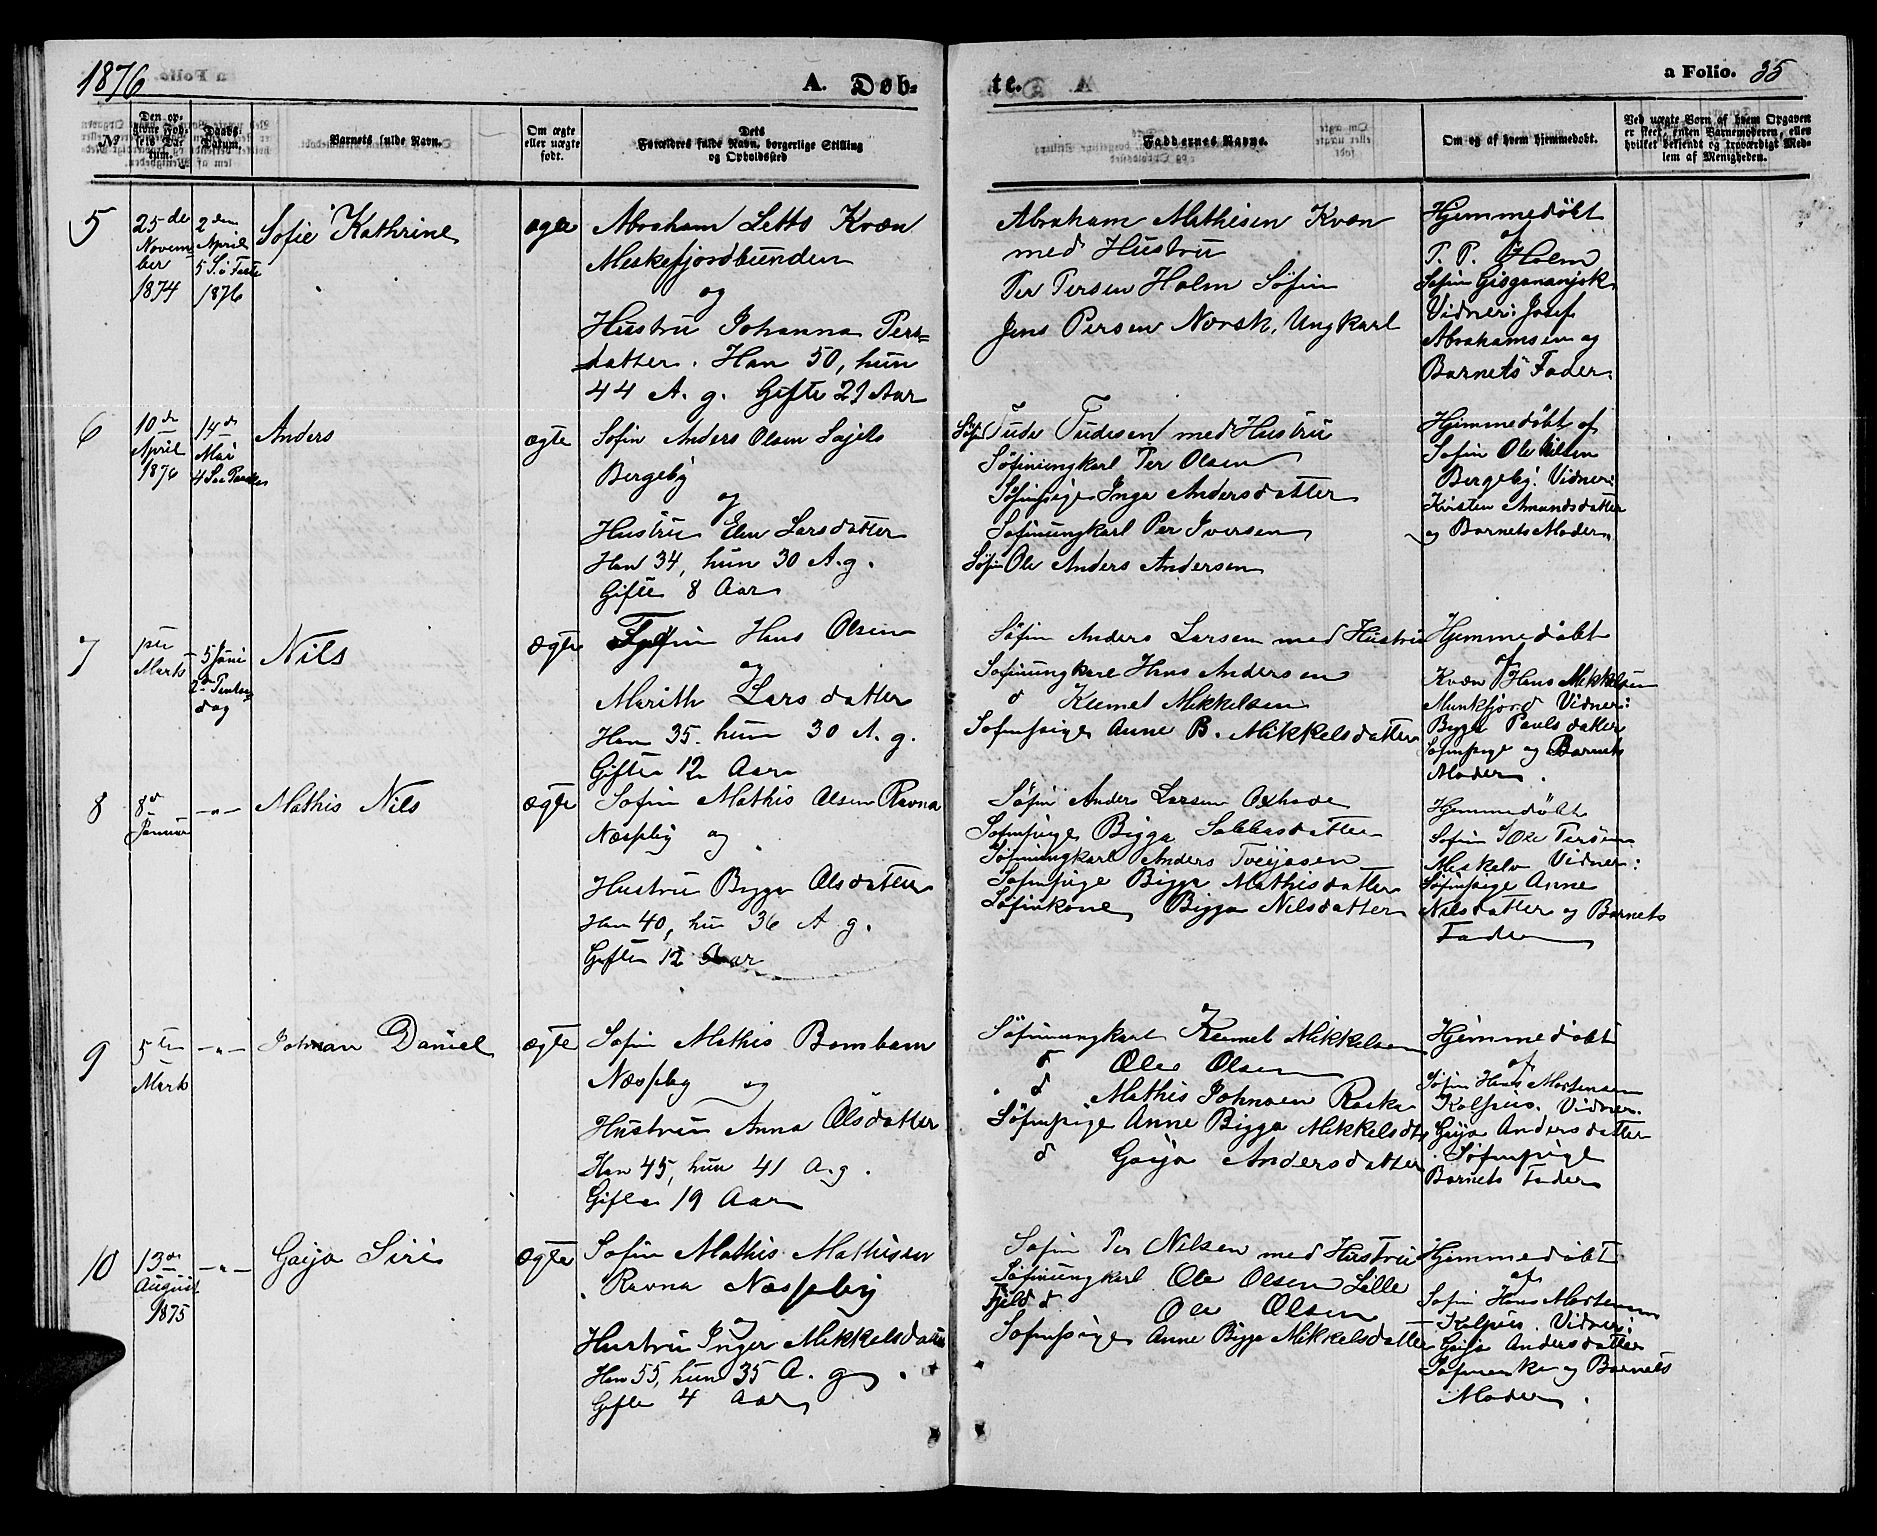 1876
A. Døb-
te.
a Folio. 35
№
Den op-
givne Fød-
sels Da-
tum.
Daabs
Datum.
Barnets fulde Navn.
Om ægte
eller uægte
født.
Dets
Forældres fulde Navn, borgerlige Stilling
og Opholdssted
Faddernes Navne.
Om og af hvem hjemmedøbt.
Ved uægte Børn af hvem Opgaven
er skeet, enten Barnemoderen, eller
hvilket bekjendt og troværdigt Med-
lem af Menigheden.
5
25de
Novem-
ber
1874
2den
April
5 S. i Faste
1876
Sofie Kathrine
ægte
Abraham Letto Kvæn
Meskefjordbunden
og
Hustru Johanna Pers-
datter. Han 50, hun
44 A. g. Gifte 21 Aar
Abraham Mathisen Kvæn
med Hustru
Per Persen Holm Søfin
Jens Persen Norsk, Ungkarl
Hjemmedøbt
af
P. P. Holm
Søfin
Vidner: Josef
Abrahamsen og
Barnets Fader.
6
10de
April
1876
14de
Mai
4 S.
Anders
ægte
Søfin Anders Olsen Sajets
Bergeby
og
Hustru Elen Larsdatter
Han 34, hun 30 A. g.
Gifte 8 Aar
Søfin Tude Tudesen med Hustru
Søfinungkarl Per Olsen
Søfinpige Inga Andersdatter
Søfinungkarl Per Iversen
Søfin Ole Anders Andersen
Hjemmedøbt af
Søfin Ole Nilsen
Bergeby. Vidner:
Kirsten Amundsdatter
og Barnets Moder.
7
1ste
Marts
5 Juni
2d Pintse-
dag
Nils
ægte
Søfin Hans Olsen
og
Marith Larsdatter
Han 35. hun 30 A. g.
Gifte 12 Aar
Søfin Anders Larsen med Hustru
Søfinungkarl Hans Andersen
d Klemet Mikkelsen
Søfinpige Anne B. Mikkelsdatter
Hjemmedøbt
af
Kvæn Hans Mikkelsen
Munkfjord Vidner:
Bigga Paulsdatter
Søfinpige og Barnets
Moder.
8
8de
Januar
-"-
Mathis Nils
ægte
Søfin Mathis Olsen Ravna
Næsseby og
Hustru Bigga Olsdatter
Han 40, hun 36 A. g.
Gifte 12 Aar
Søfin Anders Larsen Oxhode
Søfinpige Bigga Sabbasdatter
Søfinungkarl Anders Tveijasen
Søfinpige Bigga Mathisdatter
Søfinkone Bigga Nilsdatter
Hjemmedøbt
af
Søfin Ole Persen
Meskelv Vidner:
Søfinpige Anne
Nilsdatter og Barnets
Fader
9
5te
Marts
-"-
Johnan Daniel
ægte
Søfin Mathis Bomban
Næsseby og
Hustru Anna Olsdatter
Han 45, hun 41 A. g.
Gifte 19 Aar
Søfinungkarl Klemet Mikkelsen
d Ole Olsen
d Mathis Johnsen Raska
Søfinpige Anne Bigga Mikkelsdt
d Gaija Andersdatter
Hjemmedøbt
af
Søfin Hans Mortensen
Kolpus. Vidner.
Gaija Andersdatter
Søfinpige
Barnets Fader
10
13de
August
1875
-"-
Gaija Siri
ægte
Søfin Mathis Mathisen
Ravna Næsseby
og
Hustru Inger Mikkelsdatter
Han 55, hun 35 A. g.
Gifte 4 Aar
Søfin Per Nilsen med Hustru
Søfinungkarl Ole Olsen Lille
Fjeld d Ole Olsen
Søfinpige Anne Bigga Mikkelsdatter
Hjemmedøbt
af
Søfin Hans Mortensen
Kolpus. Vidner:
Gaija Andersdatter
og Barnets
Moder.